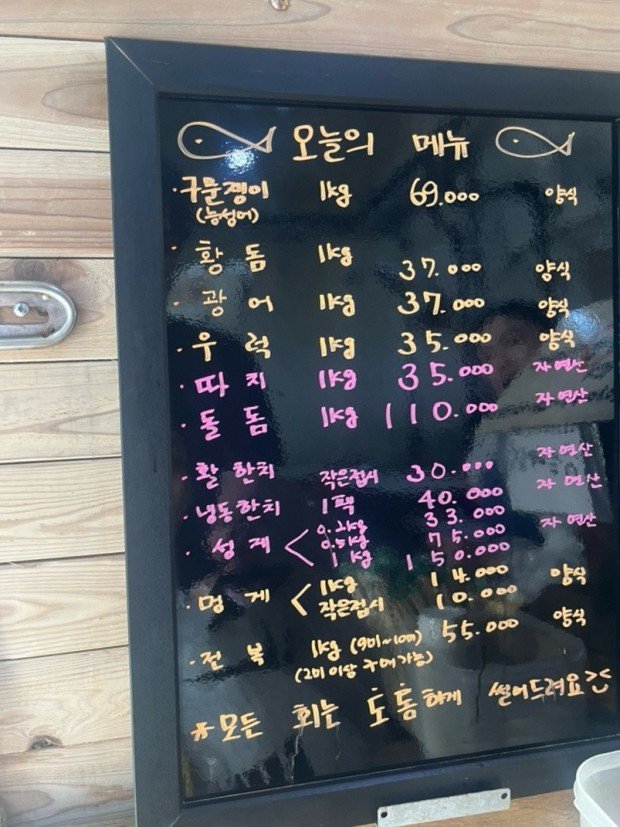 오늘의 메뉴
·구문쟁이 1kg 69.000 양식
(능성어)
·황돔 1kg 37.000 양식
·광어 1kg 37.000 양식
·우럭 1kg 35.000 양식
·따치 1kg 35.000 자연산
·돌돔 1kg 110.000 자연산
·활한치 작은접시 30.000 자연산
·냉동한치 1팩 40.000 자연산
·성게 < 0.2kg 33.000 자연산
0.5kg 75.000
1kg 150.000
·멍게 < 1kg 14.000 양식
작은접시 10.000
·전복 1kg (9미~10미) 55.000 양식
(2미 이상 구매가능)
*모든 회는 도톰하게 썰어드려요><